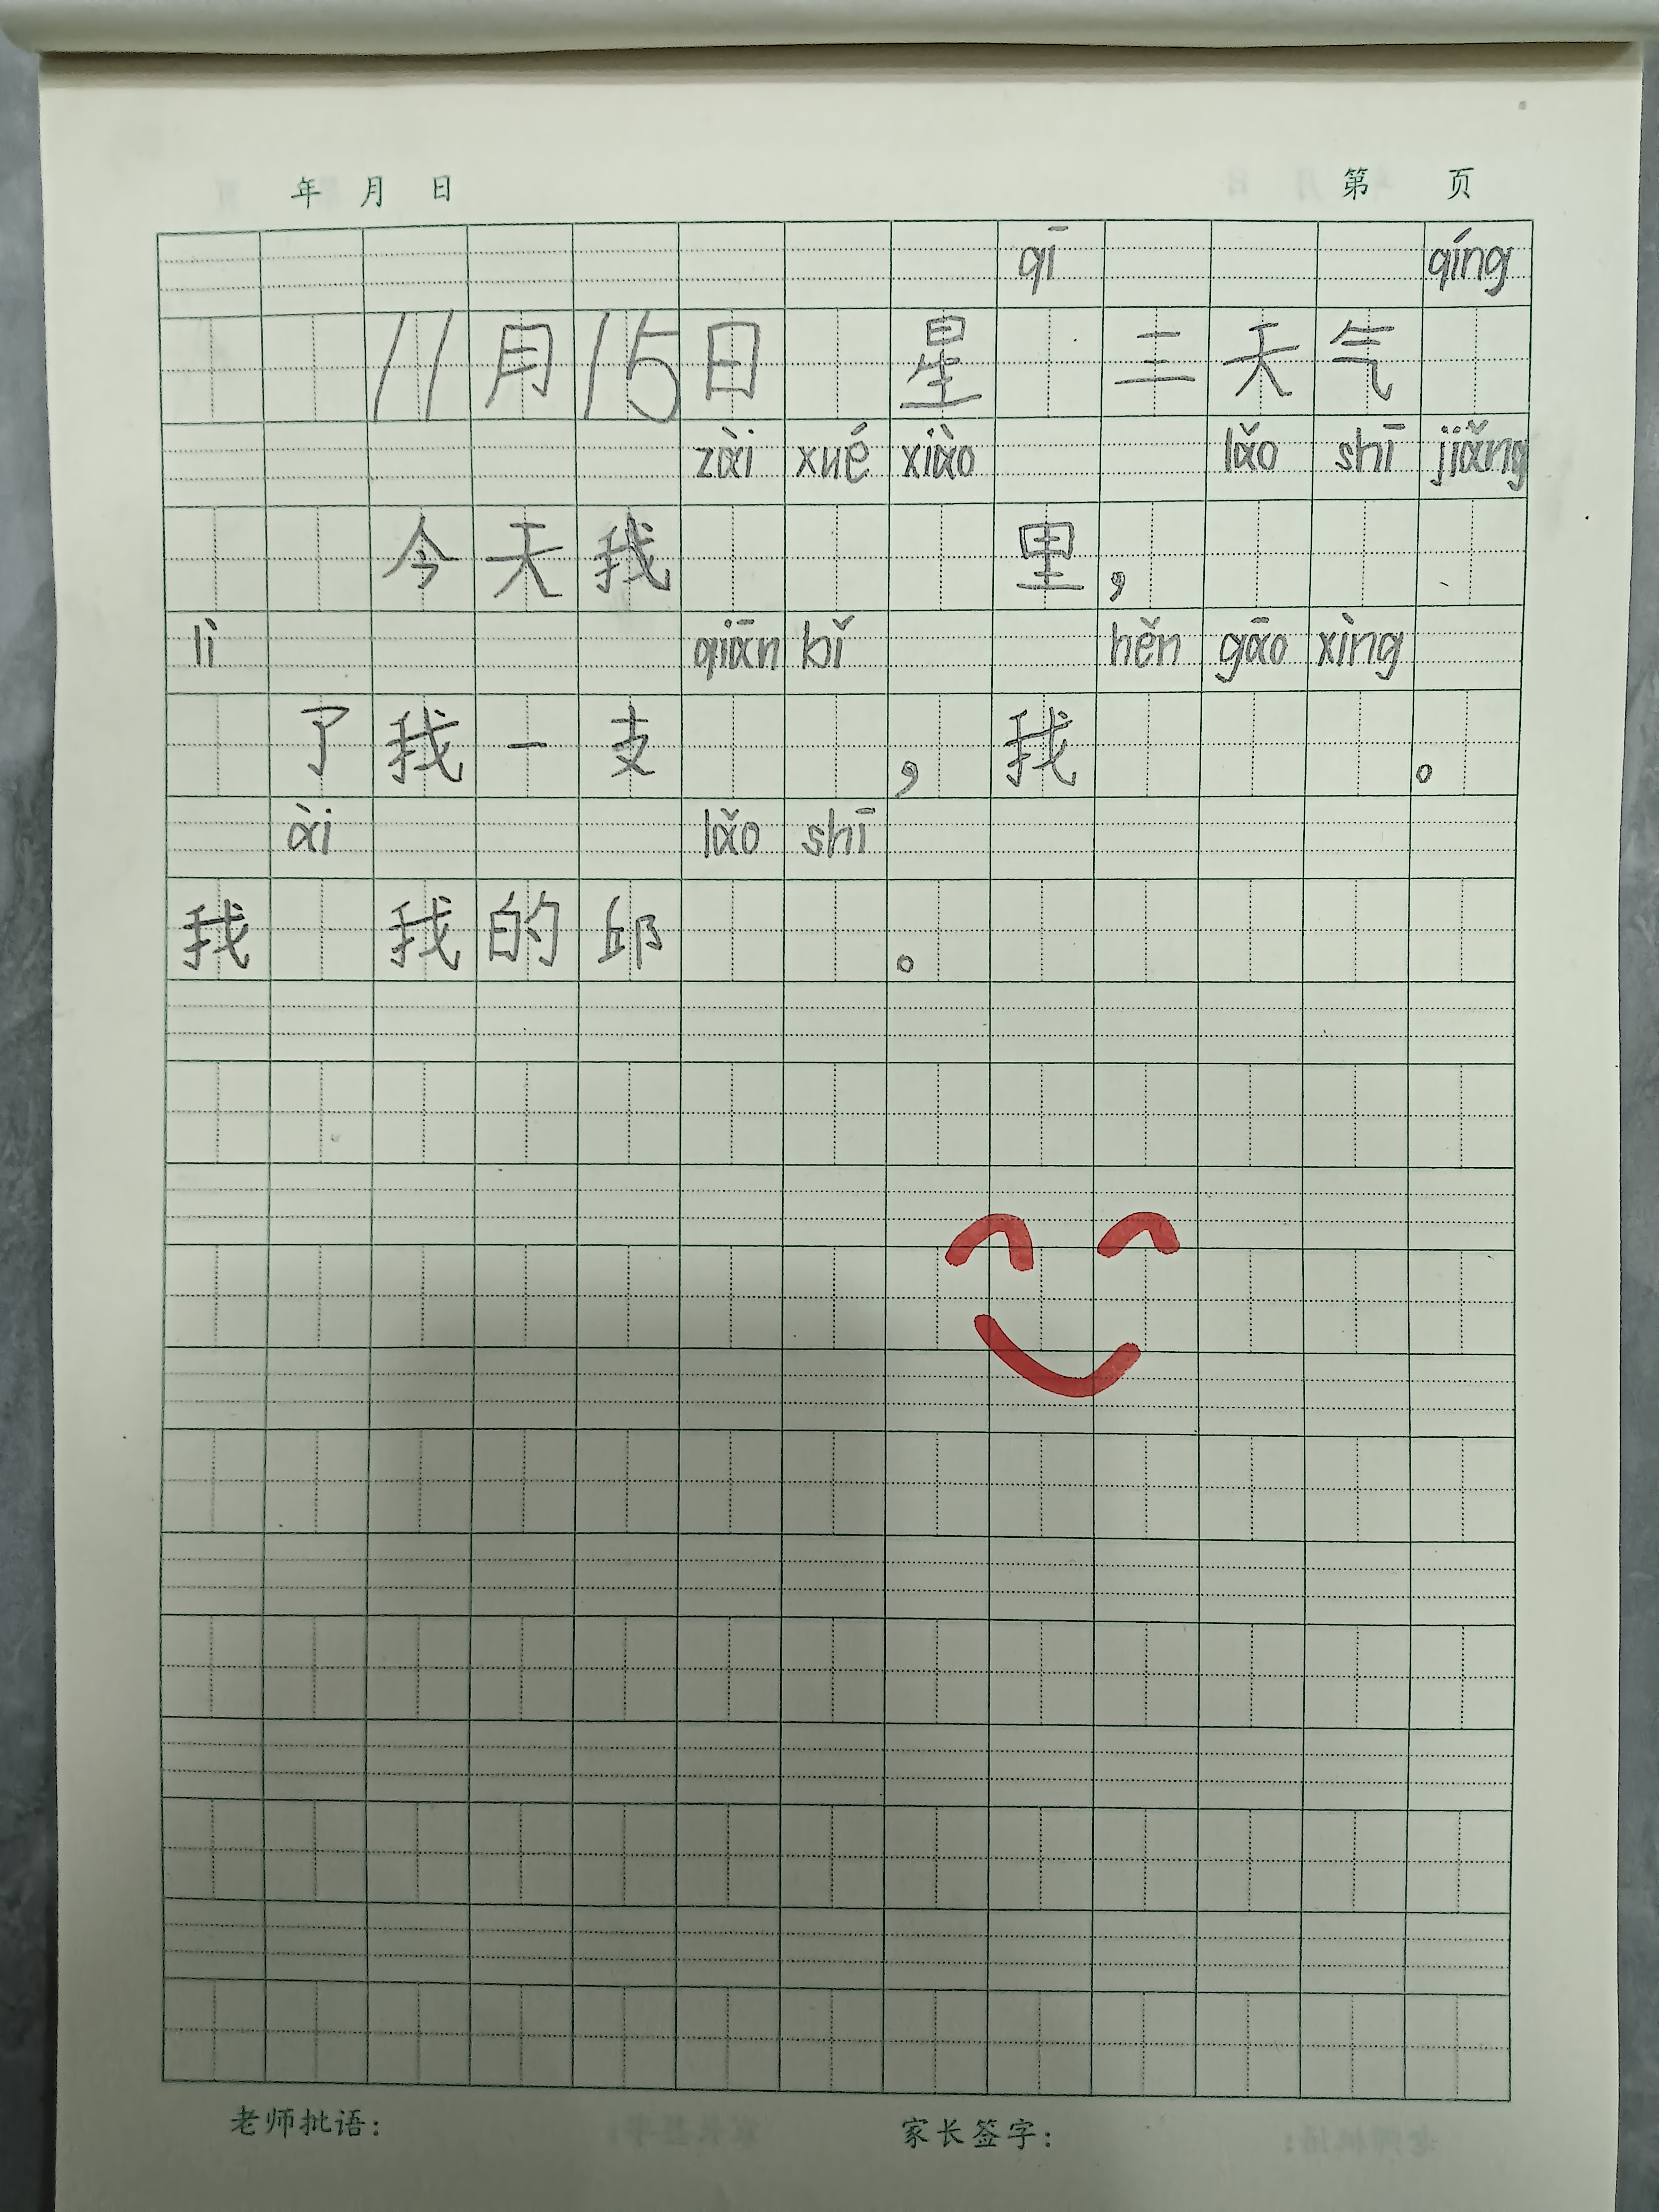 年 月 日 第 页
qī qíng
11月15日 星 三天气
zài xué xiào lǎo shī jiǎng
今天我 里，
lì qiān bǐ hěn gāo xìng
了我一支 ，我 。
ài lǎo shī
我 我的邱 。
老师批语： 家长签字：